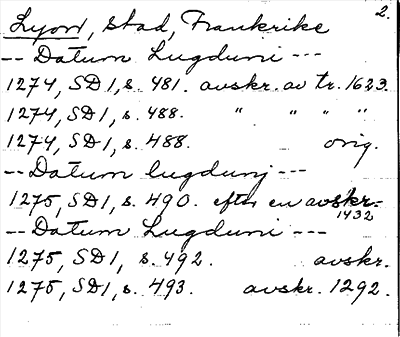 2.
Lyon, stad, Frankrike
-- Datum Lugduni ---
1274, SD1, s. 481. avskr. av tr. 1623.
1274, SD1, s. 488. " " " "
1274, SD1, s. 488. orig.
-- Datum lugdunj ---
1275, SD1, s. 490. efter en avskr.
1432
-- Datum Lugduni ---
1275, SD1, s. 492. avskr.
1275, SD1, s. 493. avskr. 1292.